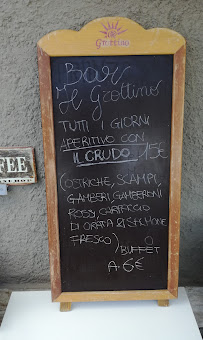 Grottino
Bar
Il Grottino
TUTTI I GIORNI
APERITIVO CON
IL CRUDO 15€
(OSTRICHE, SCAMPI,
GAMBERI, GAMBERONI
ROSSI, CARPACCIO
DI ORATA E SALMONE
FRESCO)
O
BUFFET
A 6€
FEE